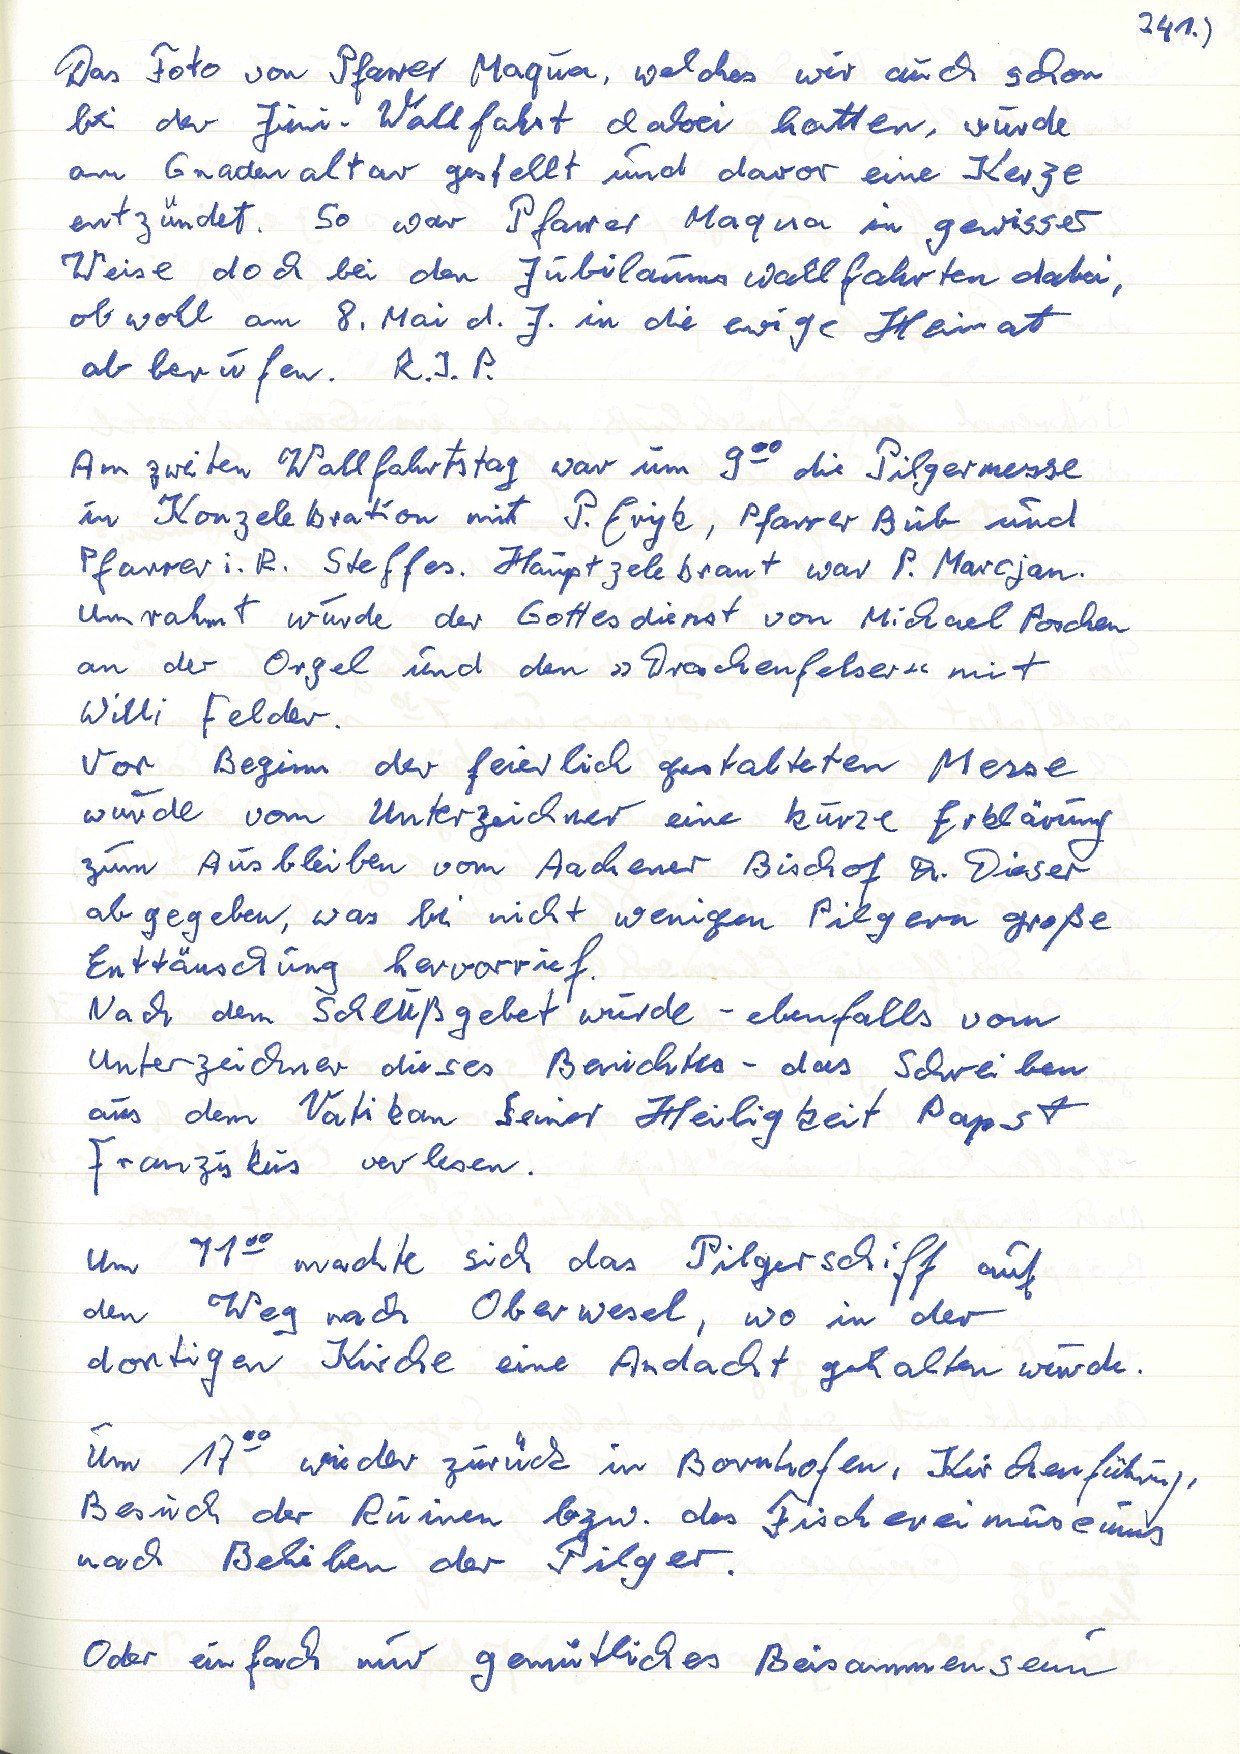 241.)
Das Foto von Pfarrer Maqua, welches wir auch schon
bei der Juni-Wallfahrt dabei hatten, wurde
am Gnadenaltar gestellt und davor eine Kerze
entzündet. So war Pfarrer Maqua in gewisser
Weise doch bei den Jubiläumswallfahrten dabei,
obwohl am 8. Mai d. J. in die ewige Heimat
abberufen. R.I.P.
Am zweiten Wallfahrtstag war um 9⁰⁰ die Pilgermesse
in Konzelebration mit P. Eryk, Pfarrer Bub und
Pfarrer i. R. Steffes. Hauptzelebrant war P. Marcjan.
Umrahmt wurde der Gottesdienst von Michael Poschen
an der Orgel und den »Drachenfelser« mit
Willi Felder.
Vor Beginn der feierlich gestalteten Messe
wurde vom Unterzeichner eine kurze Erklärung
zum Ausbleiben vom Aachener Bischof Dr. Dieser
abgegeben, was bei nicht wenigen Pilgern große
Enttäuschung hervorrief.
Nach dem Schlußgebet wurde - ebenfalls vom
Unterzeichner dieses Berichtes - das Schreiben
aus dem Vatikan Seiner Heiligkeit Papst
Franziskus verlesen.
Um 11⁰⁰ machte sich das Pilgerschiff auf
den Weg nach Oberwesel, wo in der
dortigen Kirche eine Andacht gehalten wurde.
Um 17⁰⁰ wieder zurück in Bornhofen, Kirchenführung,
Besuch der Ruinen bzw. des Fischereimuseums
nach Belieben der Pilger.
Oder einfach nur gemütliches Beisammensein